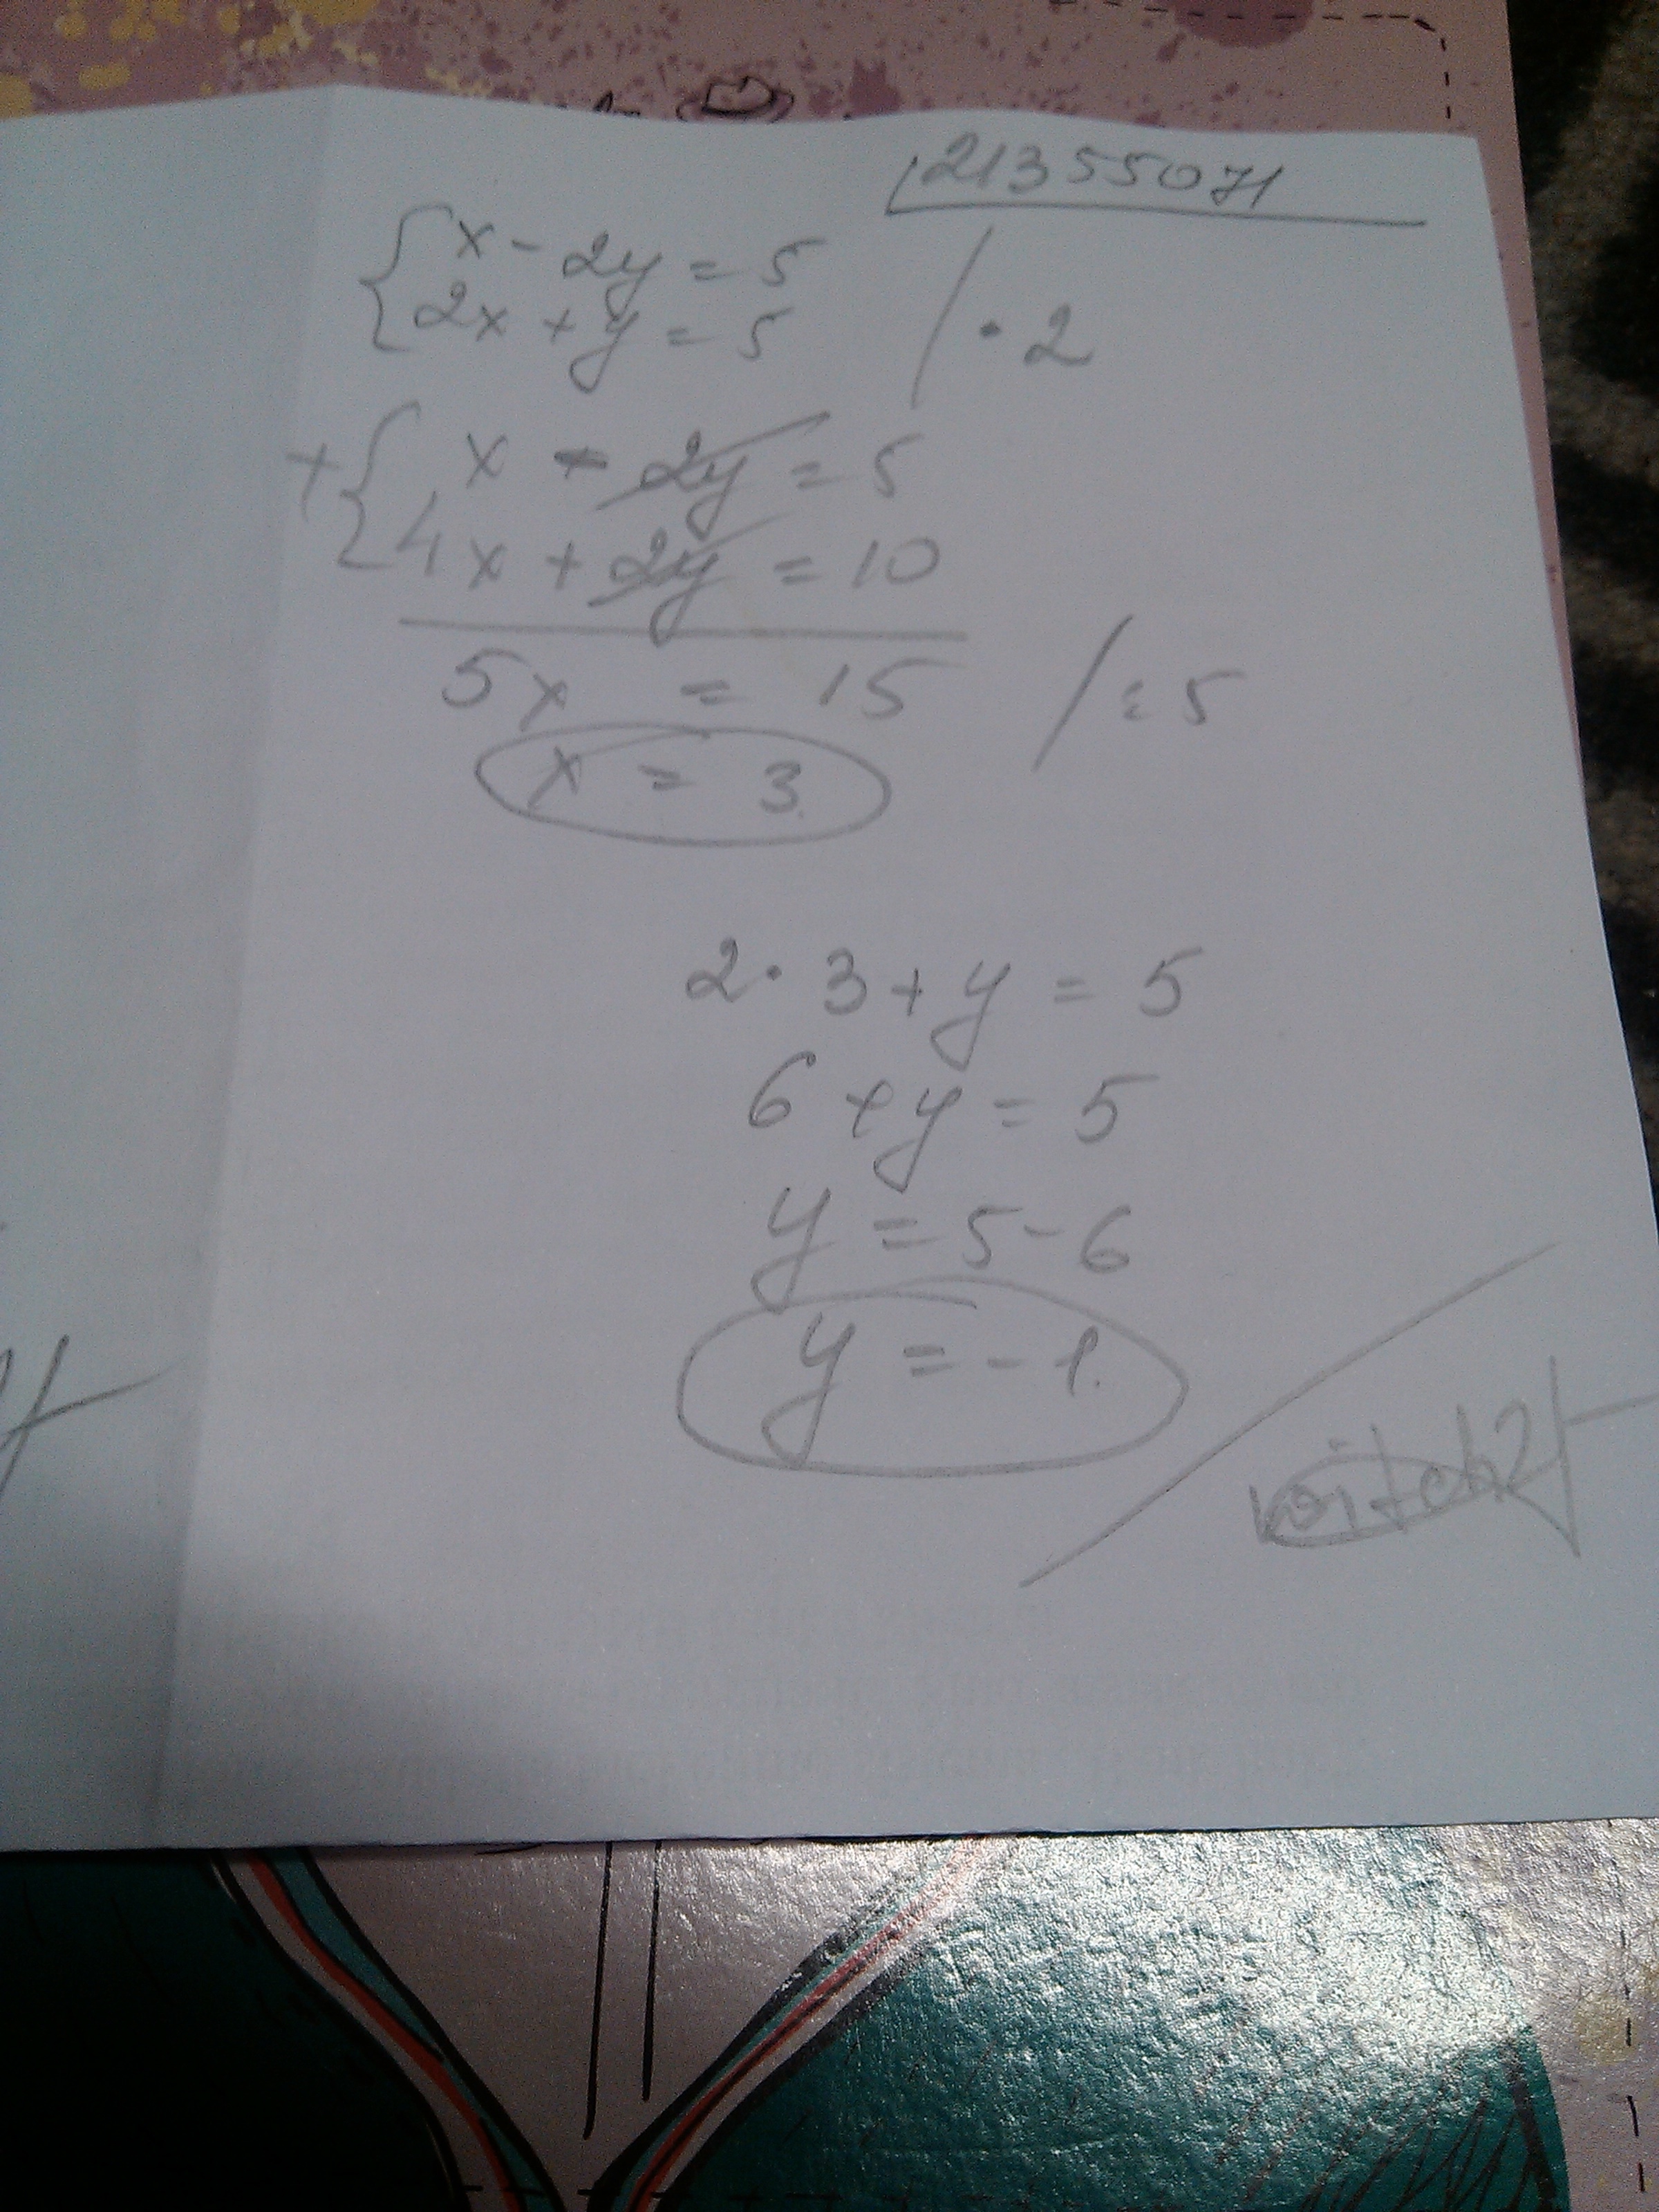 21355071
x - 2y = 5
2x + y = 5 / · 2
+ x - 2y = 5
4x + 2y = 10
5x = 15 / : 5
x = 3.
2 · 3 + y = 5
6 + y = 5
y = 5 - 6
y = -1.